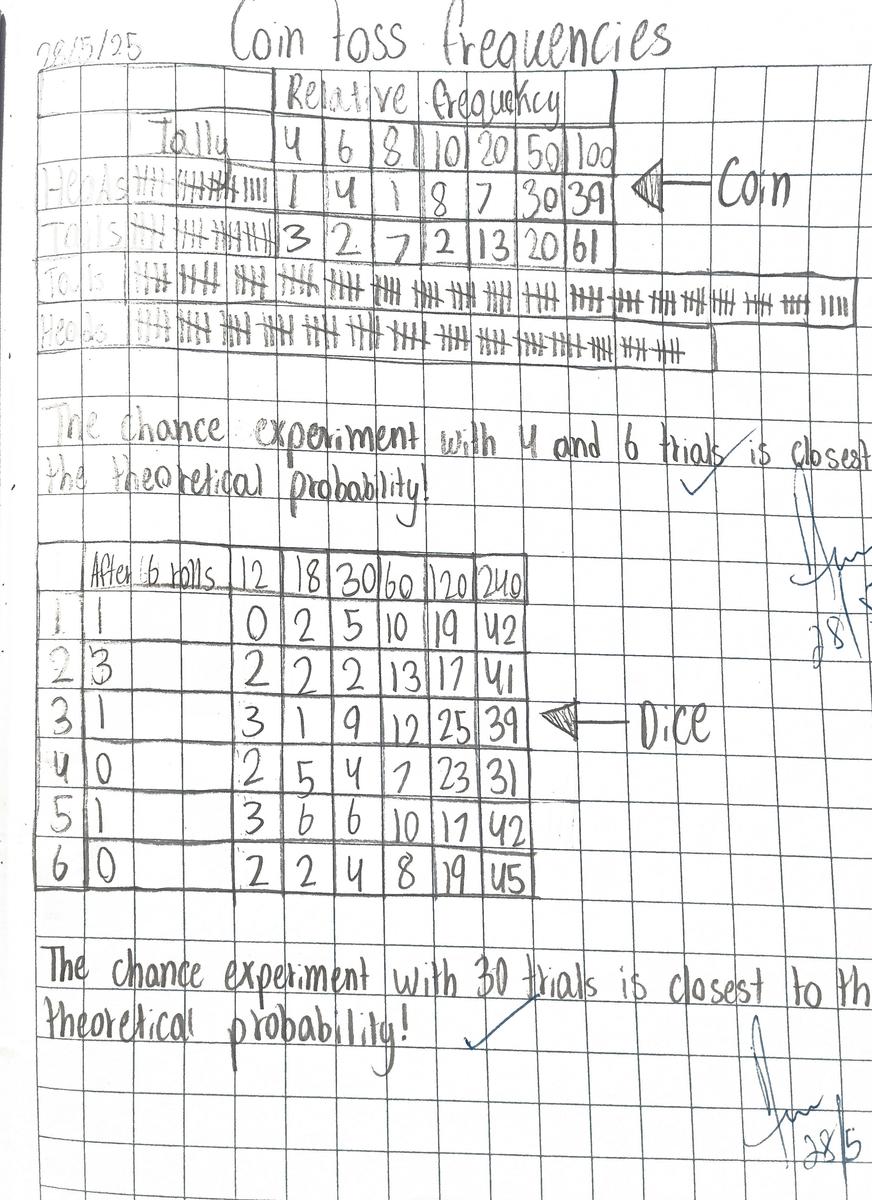 28/5/25 Coin toss frequencies
Relative frequency
Tally 4 6 8 10 20 50 100
Heads 1 4 1 8 7 30 39 Coin
Tails 3 2 7 2 13 20 61
Tails
Heads
The chance experiment with 4 and 6 trials is closest
the theoretical probability!
After 6 rolls 12 18 30 60 120 240
1 1 0 2 5 10 19 42
28/5
2 3 2 2 2 13 17 41
3 1 3 1 9 12 25 39 Dice
4 0 2 5 4 7 23 31
5 1 3 6 6 10 17 42
6 0 2 2 4 8 19 45
The chance experiment with 30 trials is closest to th
theoretical probability!
28/5